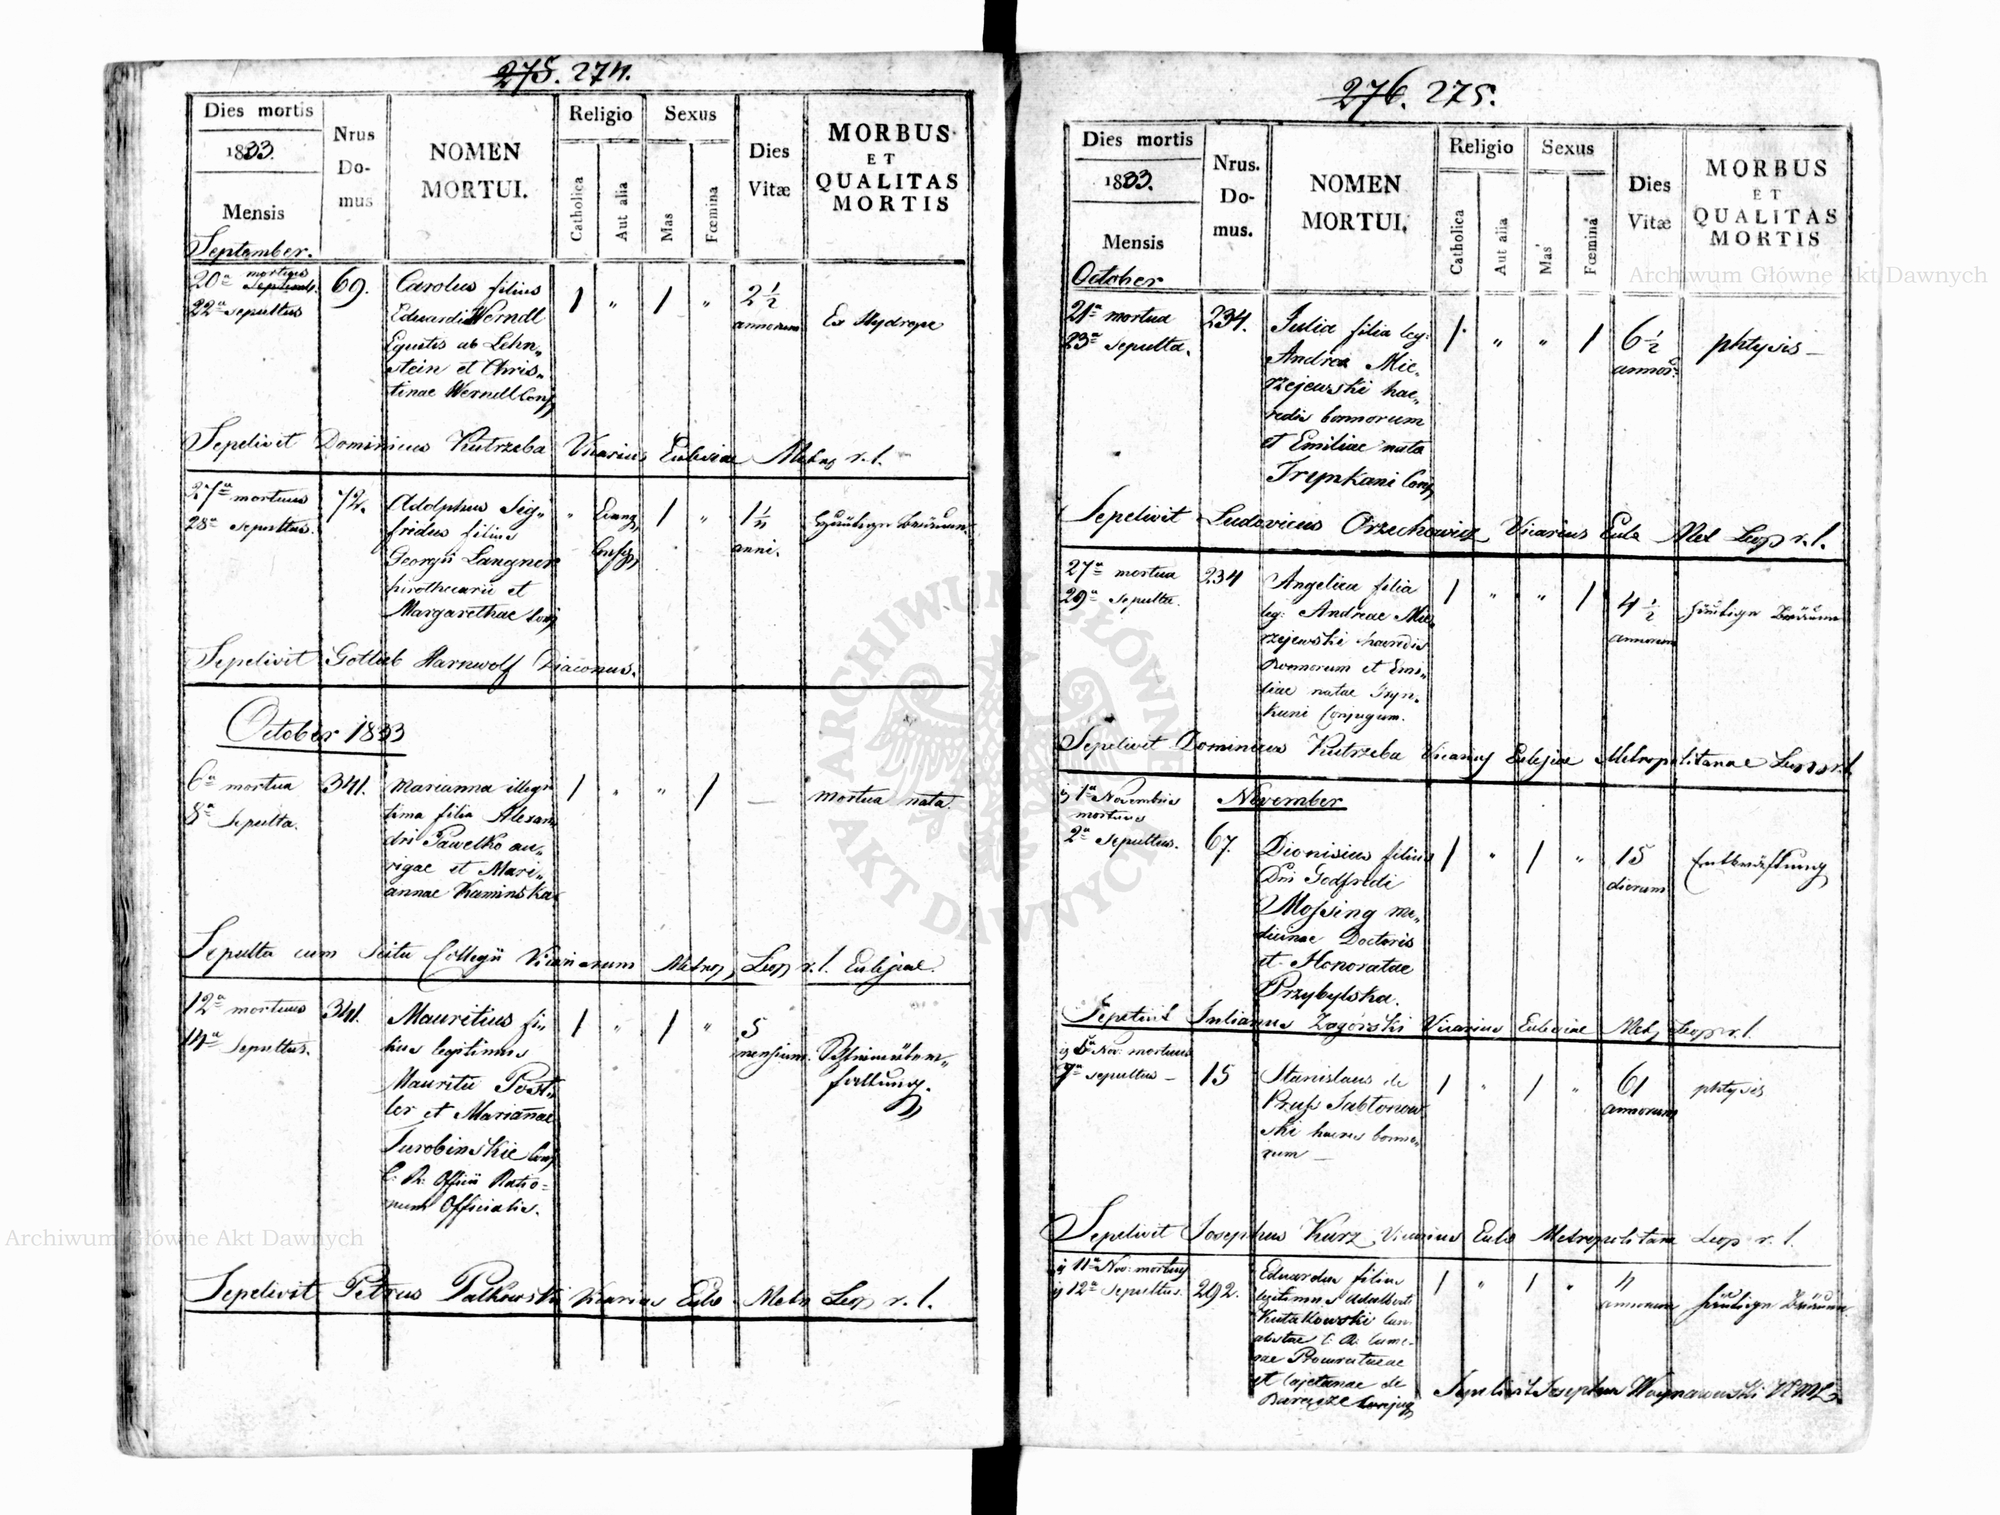 275. 274.
Dies mortis
1833.
Mensis
September.
Nrus
Do-
mus
NOMEN
MORTUI.
Religio
Catholica
Aut alia
Sexus
Mas
Fœmina
Dies
Vitæ
MORBUS
ET
QUALITAS
MORTIS
20a mortuus
Septemb.
22a sepultus
69.
Carolus filius
Eduardi Werndl
Equitis ab Lehn„
stein et Chris„
tinae Werndl Conj
1 „ 1 „
2 1/2
annorum
Ex Hydrope
Sepelivit Dominicus Kutrzeba Vicarius Eccleiae Metrop r. l.
27a mortuus
28a sepultus.
72.
Adolphus Sig„
fridus filius
Georgii Langner
hirothecarii et
Margarethae Conj
„ Evang
Confess
1 „
anni.
häutige Bräune.
Sepelivit Gottlieb Harnwolf Diaconus.
October 1833
6a mortua
8a Sepulta.
341.
Marianna illegi
tima filia Alexan
dri Pawelko au„
rigae et Mari„
annae Kaminska
1 „ „ 1
—
mortua nata.
Sepulta cum scitu Collegii Vicariorum Metrop Leop r. l. Eccleiae.
12a mortuus
14a Sepultus.
341.
Mauritius fi„
lius legitimus
Mauritii Post„
ler et Mariannae
Turobinskie Conj
C: R: Officii Ratio=
num Officialis.
1 „ 1 „
5
mensium.
Sepelivit Petrus Palkowski Vicarius Eccls Metr Leop r. l.
276. 275.
Dies mortis
1833.
Mensis
October
Nrus.
Do-
mus.
NOMEN
MORTUI.
Religio
Catholica
Aut alia
Sexus
Mas
Fœmina
Dies
Vitæ
MORBUS
ET
QUALITAS
MORTIS
21a mortua
23a sepulta.
234.
Julia filia leg:
Andrea Mie„
rzejewski hae„
redis bonnorum
et Emiliae nata
Trynkani Conj
1 „ „ 1
6 1/2
annor:
phtysis —
Sepelivit Ludovicus Orzechowicz Vicarius Eccls Met Leop r. l.
27a mortua
29a Sepulta.
234
Angelica filia
leg: Andreae Mie
rzejewski haeredis
Bonnorum et Emi„
liae natae Tryn„
kuni Conjugum.
1 „ „ 1
4 1/2
annorum
häutige Bräune
Sepelivit Dominicus Kutrzeba Vicarius Eccleiae Metropolitanae Leop r. l.
November
1a Novembris
mortuus
2a Sepultus.
67.
Dionisius filius
Dni Godfredi
Mossing me„
dicinae Doctoris
et Honoratae
Przybylska.
1 „ 1 „
15
dierum
Entkräftung
Sepelivit Julianus Zagórski Vicarius Eccleiae Met, Leop r. l.
5a Nov: mortuus
7a sepultus —
15
Stanislaus de
Pruss Jabłonow
ski haeres bonno„
rum —
1 „ 1 „
61
annorum
phtysis
Sepelivit Josephus Kurz Vicarius Eccls Metropolitan Leop r. l.
11a Nov: mortuus
12a Sepultus.
292.
Eduardus filius
legitimus Adalberti
Kutakowski Can„
abstae C: R: Came=
rae Procuraturae
et Cajetanae de
Barącze Conjug
1 „ 1 „
annorum
häutige Bräune
Sepelivit Josephus Woynarowski
Archiwum Główne Akt Dawnych
Archiwum Główne Akt Dawnych
ARCHIWUM GŁÓWNE AKT DAWNYCH